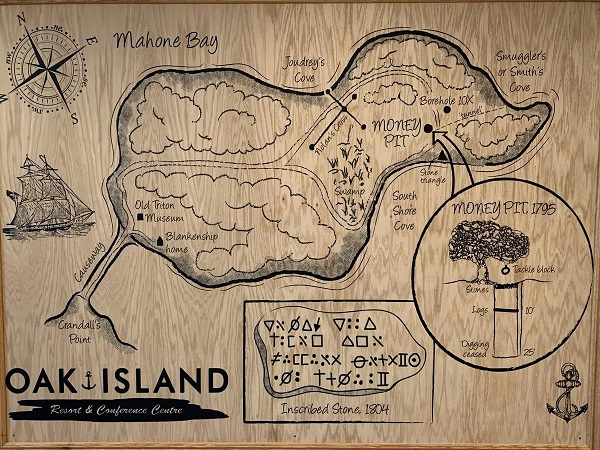 N
E
S
ne
se
Mahone Bay
Joudrey's
Cove
Smuggler's
or Smith's
Cove
Borehole 10X
tunnel
MONEY
PIT
Nolan's Cross
Stone
triangle
Swamp
South
Shore
Cove
Old Triton
Museum
Blankenship
home
Causeway
Crandall's
Point
MONEY PIT 1795
Tackle block
Stones
Logs
10'
Digging
ceased
25'
Inscribed Stone, 1804
OAK ISLAND
Resort & Conference Centre